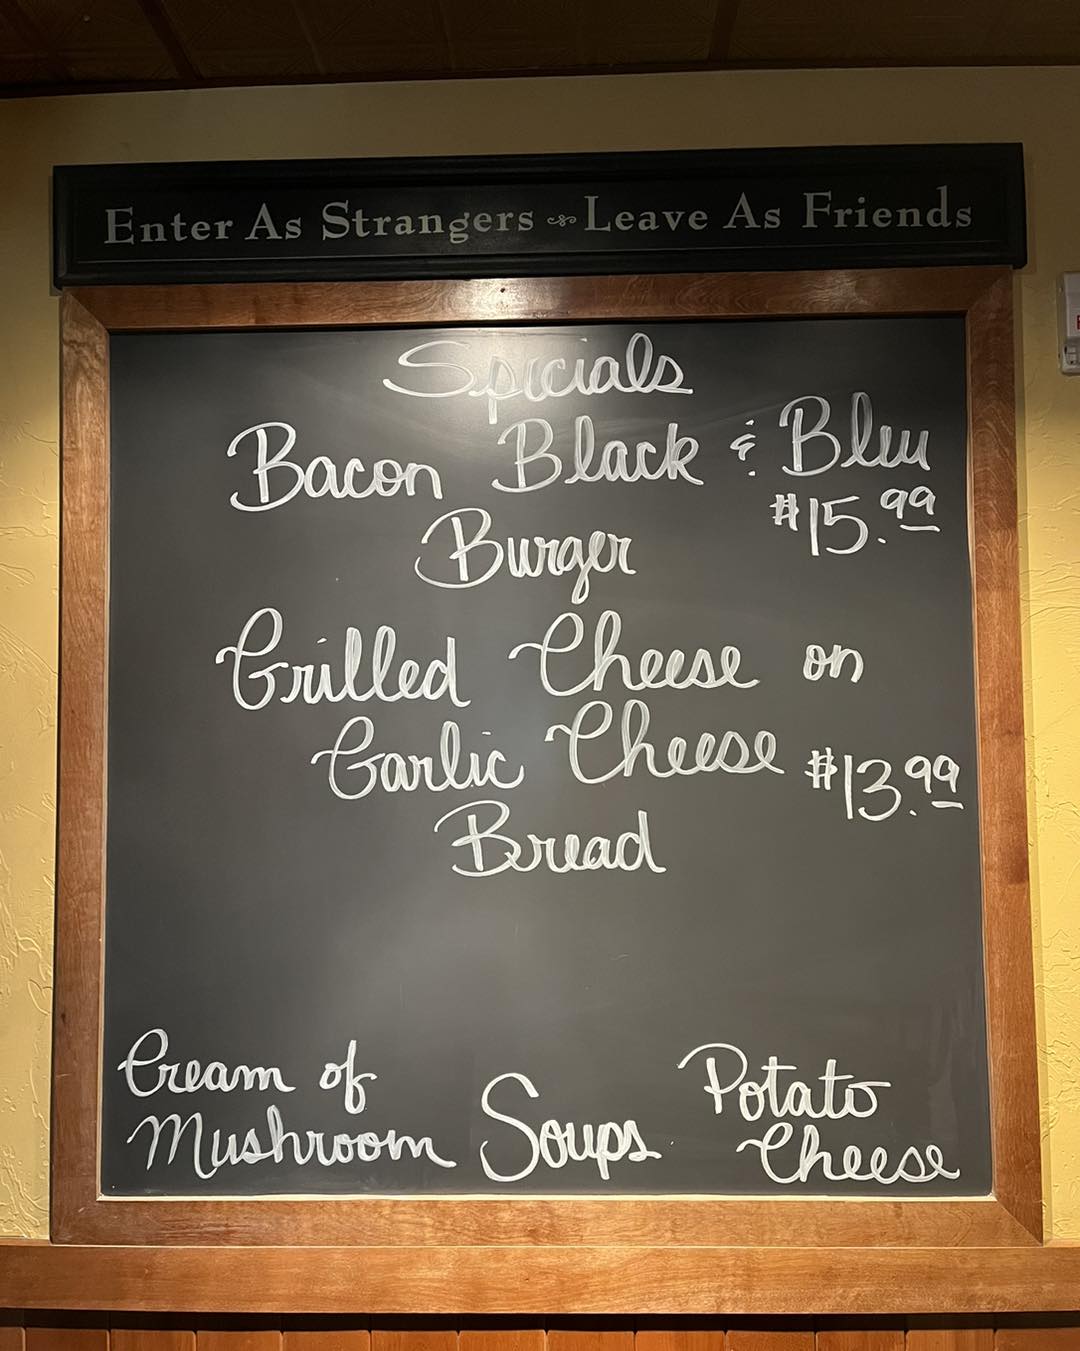 Enter As Strangers Leave As Friends
Specials
Bacon Black & Bleu
$15.99
Burger
Grilled Cheese on
Garlic Cheese $13.99
Bread
Cream of
Mushroom
Soups
Potato
Cheese